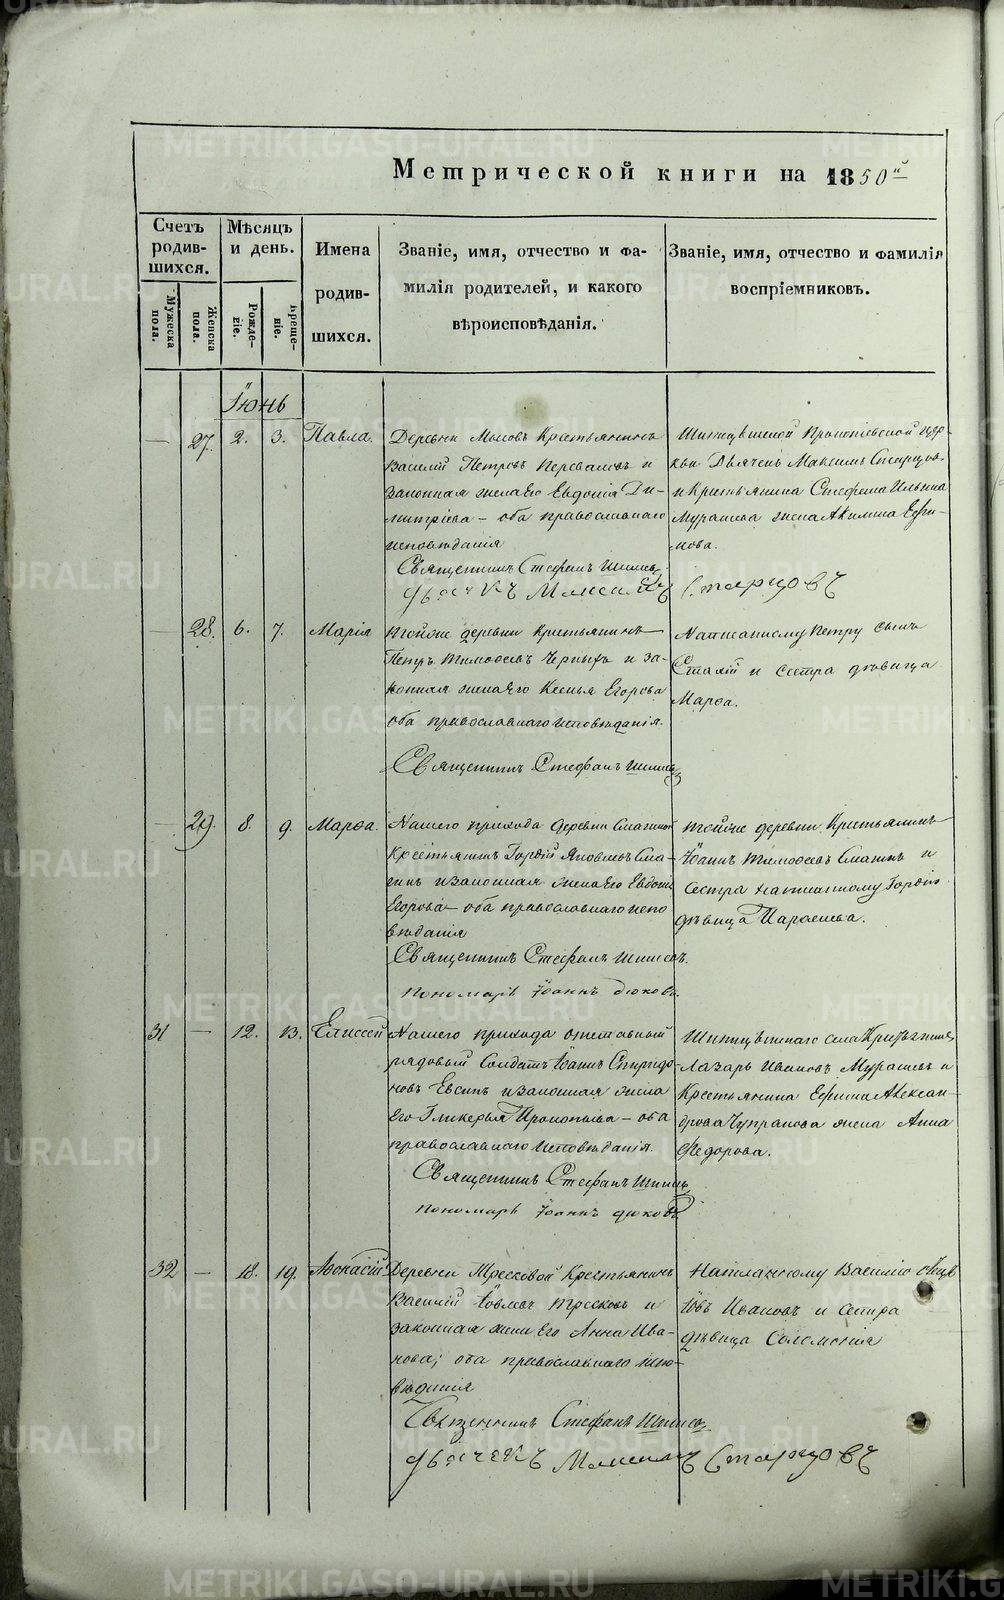 Метрической книги на 1850й
Счетъ родив-шихся.
Мужеска пола.
Женска пола.
Мѣсяцъ и день.
Рожде-ніе.
Креще-ніе.
Имена
родив-
шихся.
Званіе, имя, отчество и фа-
милія родителей, и какого
вѣроисповѣданія.
Званіе, имя, отчество и фамилія
воспріемниковъ.
Іюнь
— 27. 2. 3. Павла.
Деревни Крестьянинъ
Василій Петровъ Переваловъ и
законная жена Его Евдокія Ди-
митріева – оба православнаго
исповѣданія
Священникъ Стефанъ Шишевъ
Дьячекъ Максимъ Старцовъ
Шипицынской Прокопіевской цер-
кви Дьячекъ Максимъ Старцовъ
и Крестьянина Стефана Ильина
Мурашева жена Акилина Ефи-
мова.
— 28. 6. 7. Марія
тойже деревни Крестьянинъ
Петръ Тимофеевъ Черныхъ и за-
конная жена Его Ксенья Егорова
оба православнаго исповѣданія.
Священникъ Стефанъ Шишевъ
Написанному Петру сынъ
и сестра дѣвица
Марѳа.
— 29. 8. 9. Марѳа.
Нашего прихода деревни Смагиной
Крестьянинъ Гордѣй Яковлевъ Сма-
гинъ и законная жена Его Евдокія
Егорова – оба православнаго испо
вѣданія
Священникъ Стефанъ Шишевъ.
Пономарь Іоаннъ Дюковъ.
тойже деревни Крестьянинъ
Іоаннъ Тимофеевъ Смагинъ и
Сестра написанному Гордѣю
дѣвица Парасковья.
31 — 12. 13. Елиссей
Нашего прихода отставный
рядовый Солдатъ Іоаннъ Спиридо-
новъ Евсинъ и законная жена
Его Гликерья Прокопьева – оба
православнаго исповѣданія.
Священникъ Стефанъ Шишевъ
Пономарь Іоаннъ Дюковъ
Шипицынскаго села Крестьянинъ
Лазарь Ивановъ Мурашевъ и
Крестьянина Ефима Алексан-
дрова Чупракова жена Анна
Федорова.
32 — 18. 19. Афонасій
Деревни Тресковой Крестьянинъ
Василій Іовлевъ Тресковъ и
законная жена Его Анна Ива-
нова; оба православнаго испо-
вѣданія
Священникъ Стефанъ Шишевъ
Дьячекъ Максимъ Старцовъ
Написанному Василію отецъ
Іовъ Ивановъ и Сестра
дѣвица Соломонія
METRIKI.GASO-URAL.RU